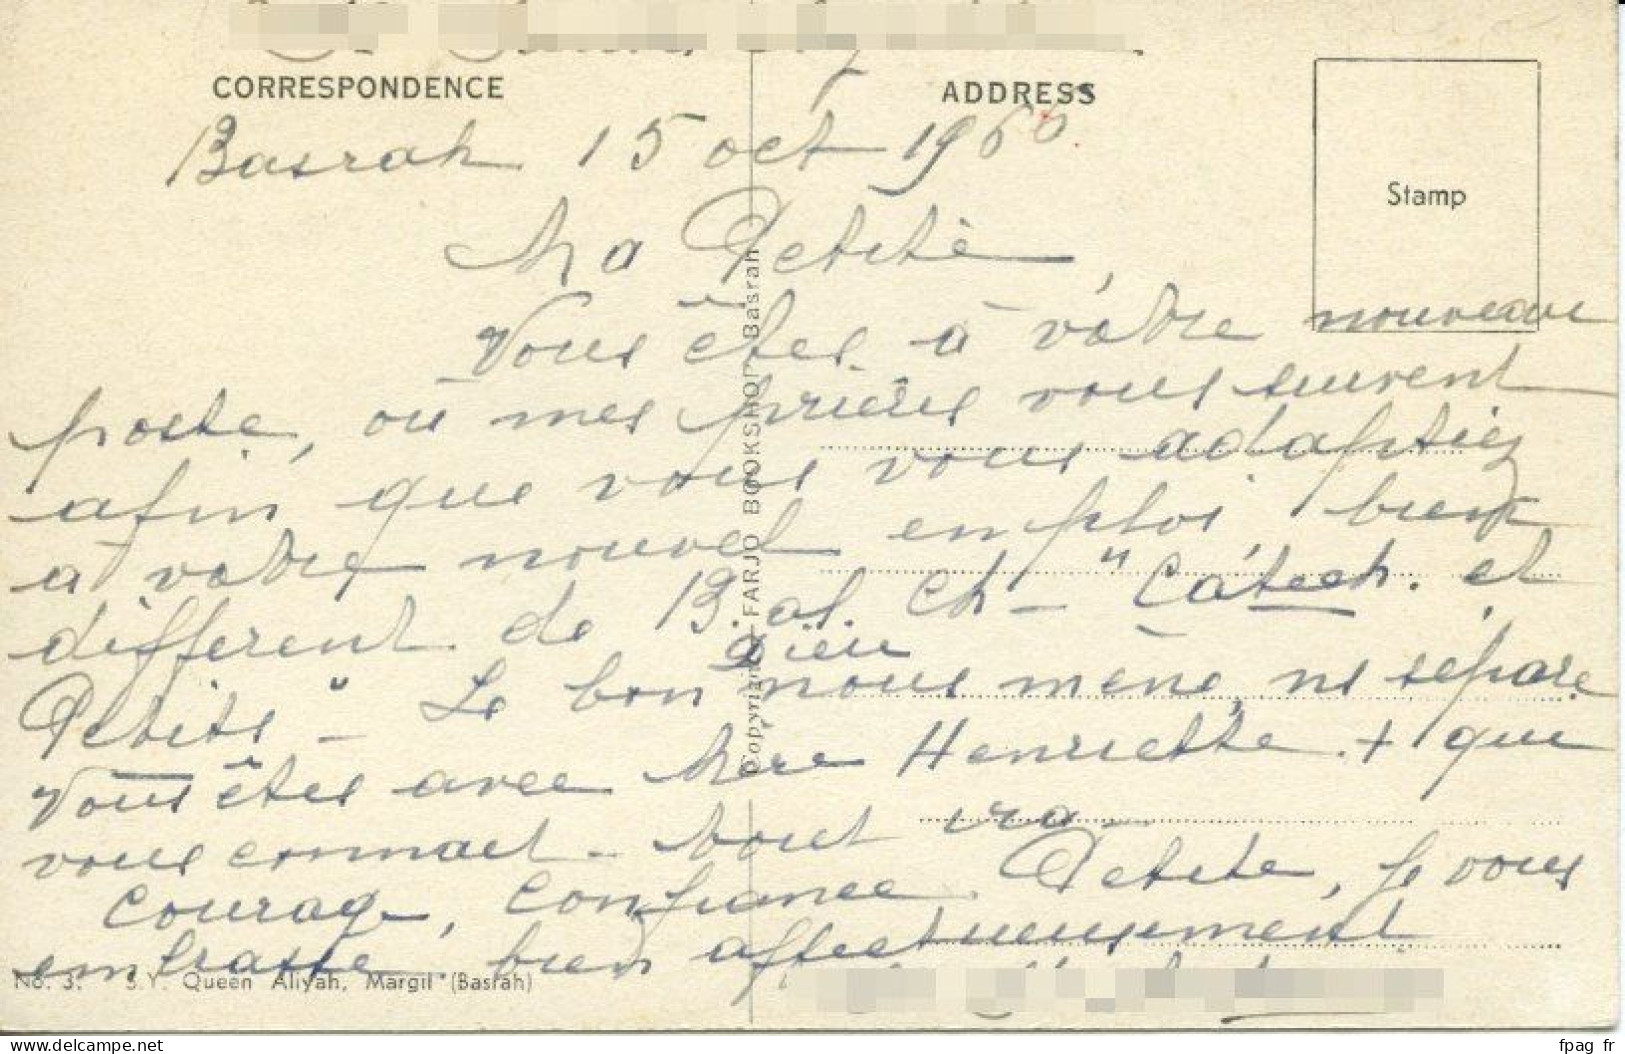 CORRESPONDENCE
ADDRESS
Stamp
Basrah 15 oct 1960
Ma Petite,
Vous êtes à vôtre nouveau
poste, où mes prières vous suivent
afin que vous vous adaptiez
à vôtre nouvel emploi, bien
différent de B. al. Ch - "Catéch. et
Petits" - Le bon Dieu nous mène, ne sépare
Vous êtes avec Mère Henriette + que
vous connaet - tout ira
Courage, Confiance. Petite, je vous
embrasse bien affectueusement
Copyright FARJO BOOKSHOP Basrah
No. 3. S.Y. Queen Aliyah, Margil (Basrah)
www.delcampe.net
fpag_fr